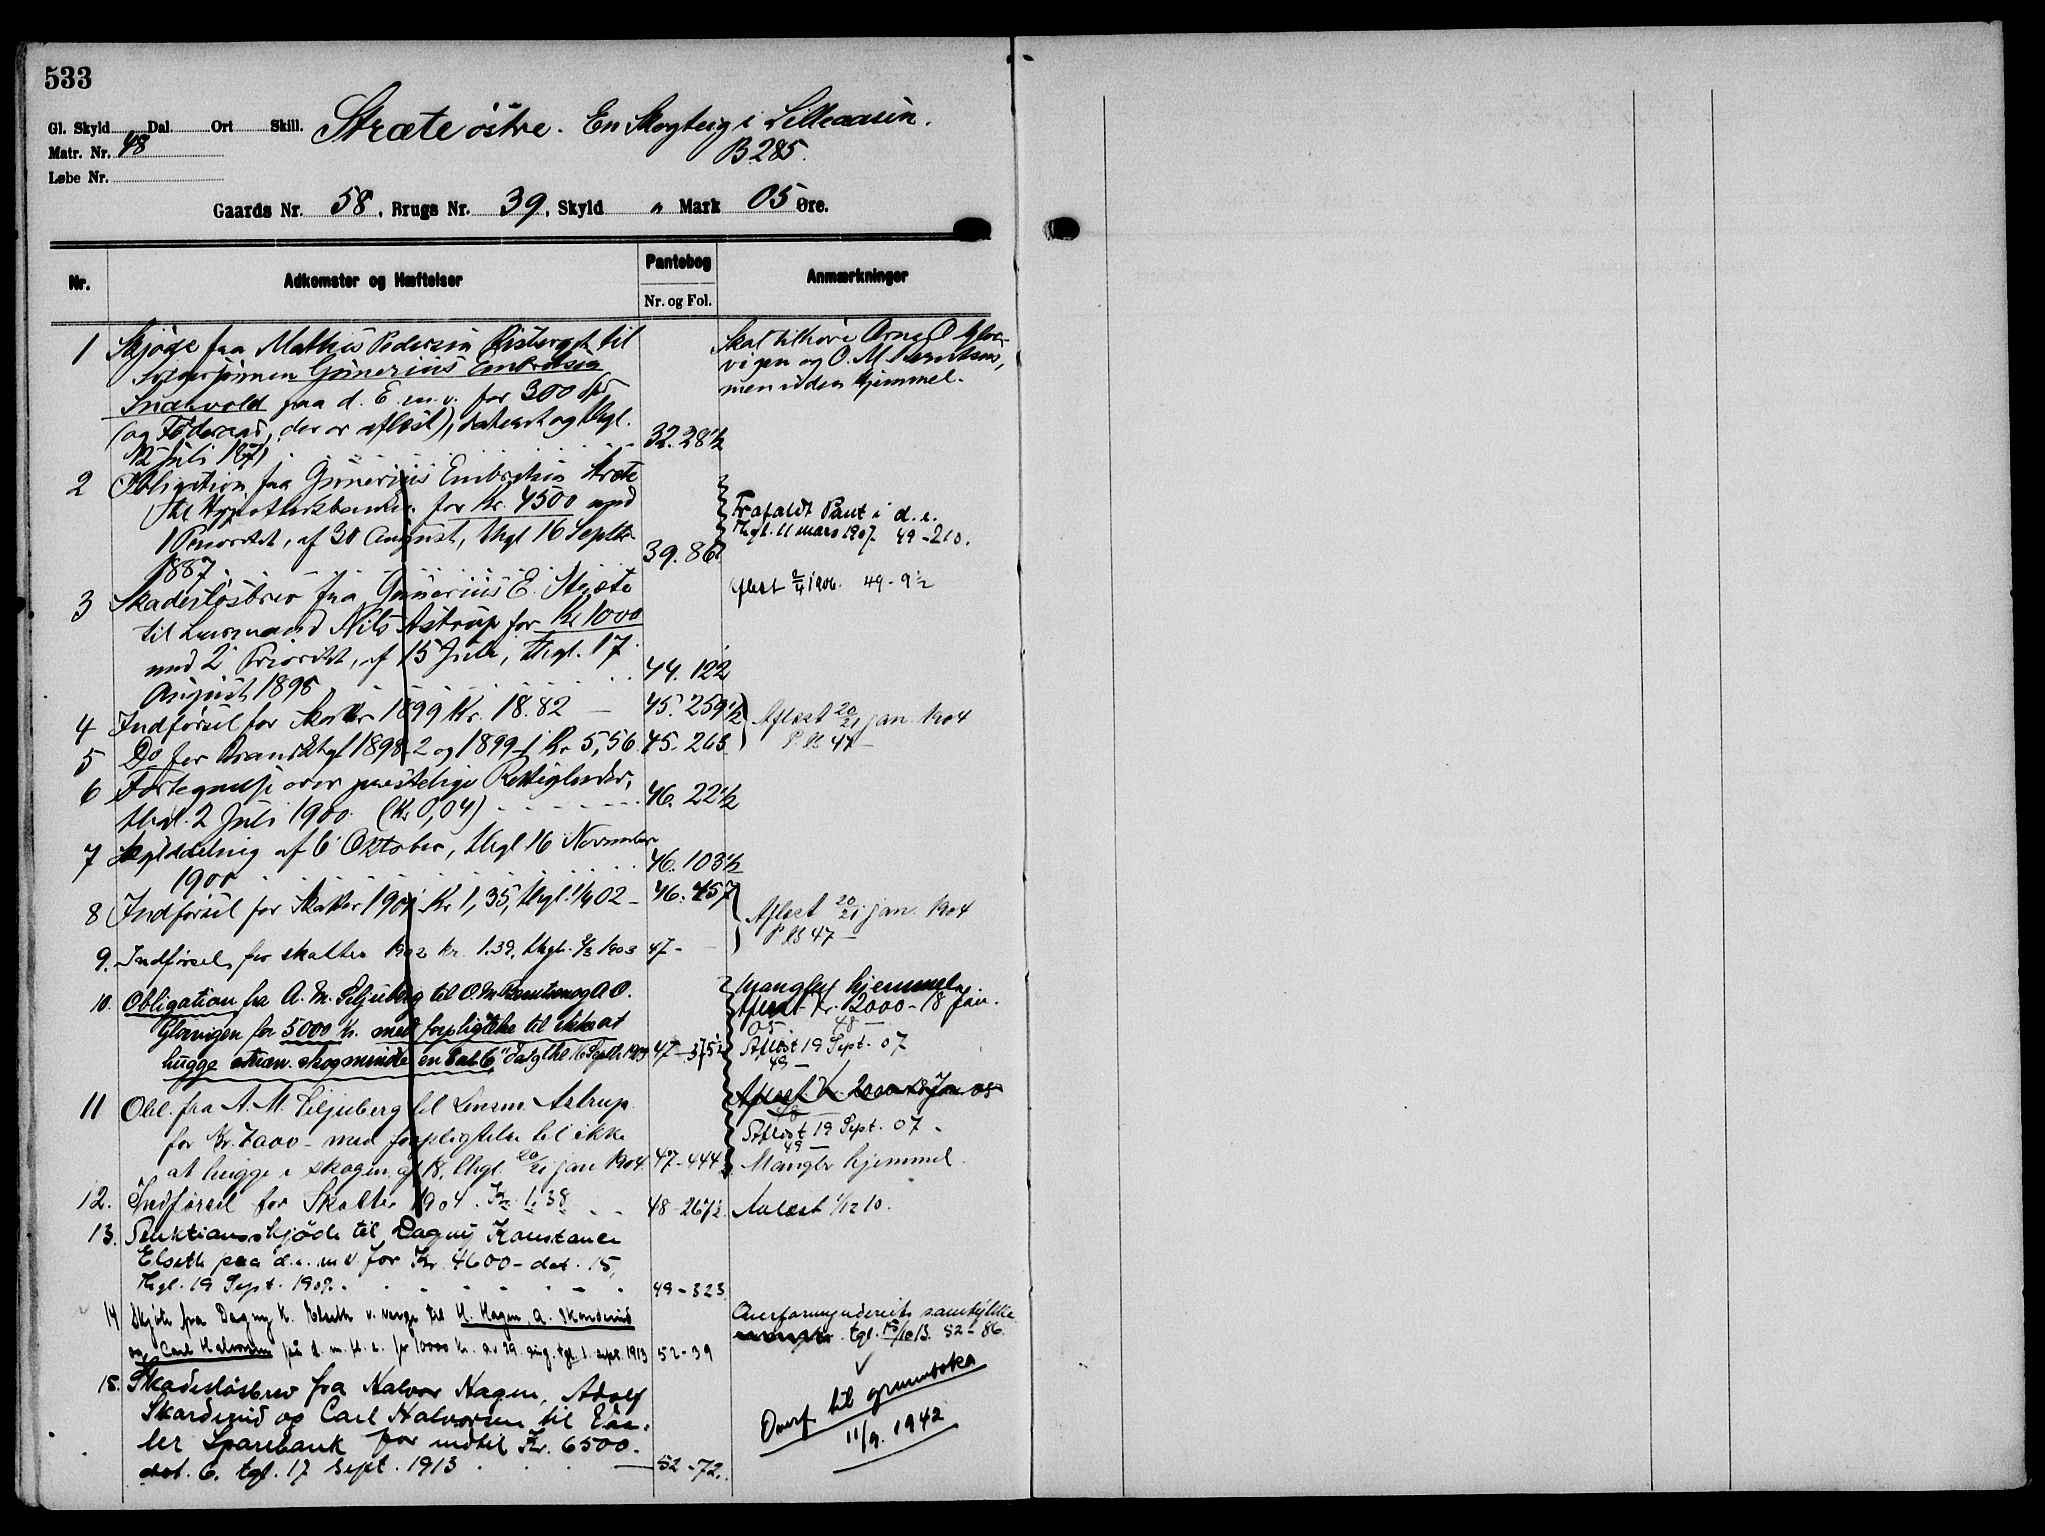 533
Gl. Skyld Dal. Ort Skill. Stræte östre. En Skogteig i Lilleaasen.
Matr. Nr. 48 B. 285.
Løbe Nr.
Gaards Nr. 58, Brugs Nr. 39, Skyld " Mark 05 Øre.
Nr. Adkomster og Hæftelser Pantebog Anmærkninger
Nr. og Fol.
1 Skjøde fra Mathis Pedersen til Skal tilhøre Arne O.
Gunerius Embretsen vigen og O. M. Berntsen,
paa d. E. m. v. for 300 Spd men uden Hjemmel.
(og Föderaad, der er aflöst), dateret og thgl.
12 Juli 1871 32. 28½
2 Obligation fra Gunerius Embretsen Stræte
til Hypothekbanken for Kr. 4500 med Frafaldt Pant i d. e.
1 Prioritet, af 30 August, thgl 16 Septbr Thgl. 11 mars 1907. 49-210.
1887. 39. 86
3 Skadesløsbrev fra Gunerius E. Stræte aflæst 1906. 49-9½
til Lensmand Nils Astrup for Kr 1000
med 2 Prioritet, af 15 Juli, thgl. 17
August 1895 44. 122
4 Indførsel for Skatter 1899 Kr. 18.82 45. 259½ Aflæst 20/21 jan. 1904
5 Do for 1898-2 og 1899-1 Kr 5,56 45. 263 P. B 47 -
6 Fortegnelse over prestelige Rettigheder,
thgl. 2 Juli 1900. (Kr 0,04) 46. 22½
7 Skylddeling af 6 Oktober, thgl 16 November
1900 46. 103½
8 Indførsel for Skatter 1901 Kr 1,35, thgl. 02 - 46. 457 Aflæst 20/21 jan. 1904
9. Indførsel for skatter 1902 kr. 1.39. thgl. 1903 47- P. B 47 -
10. Obligation fra A. M. Liljuberg til O. M. Berntsen og A. O. Mangler hjemmel.
for 5000 Kr. med forpligtelse til ikke at Aflæst Kr. 2000 - 18 Jan. 05 48 -
hugge skog mindre en 47-375½ Aflöst 19 Sept. 07 49 -
11 Obl. fra A. M. Liljuberg til Lensm. Astrup Aflæst Kr. 2000 18 Jan 05
for Kr. 2000 - med forpligtelse til ikke Aflöst 19 Sept. 07 - 49 -
at hugge i skogen af 18, thgl. 20/21 jan 1904. 47-444 Mangler hjemmel.
12. Indførsel for Skatter 1904. Kr. 1.38 48-267½ Avlæst 1/12 10.
13. Auktionsskjöde til Dagny Konstance
Elseth paa d. e. m v for Kr. 4600 - dat. 15,
thgl. 19 Sept. 1907. 49-323
14 Skjöte fra Dagny K. Elseth v. verge til H. Hagen, A. Skarderud Overformynderiets samtykke
og Carl Halvorsen på d. m. fl. e. for 10000 kr. av 29. aug. tgl. 1. sept. 1913 52-39 mangler. tgl. 15/10 13. 52-86.
15. Skadesløsbrev fra Halvor Hagen, Adolf
Skarderud og Carl Halvorsen til Vaa- Overf. til grunnboka
ler Sparebank for indtil Kr. 6500. 11/9. 1942
dat. 6. tgl. 17 Sept. 1913 52-72.